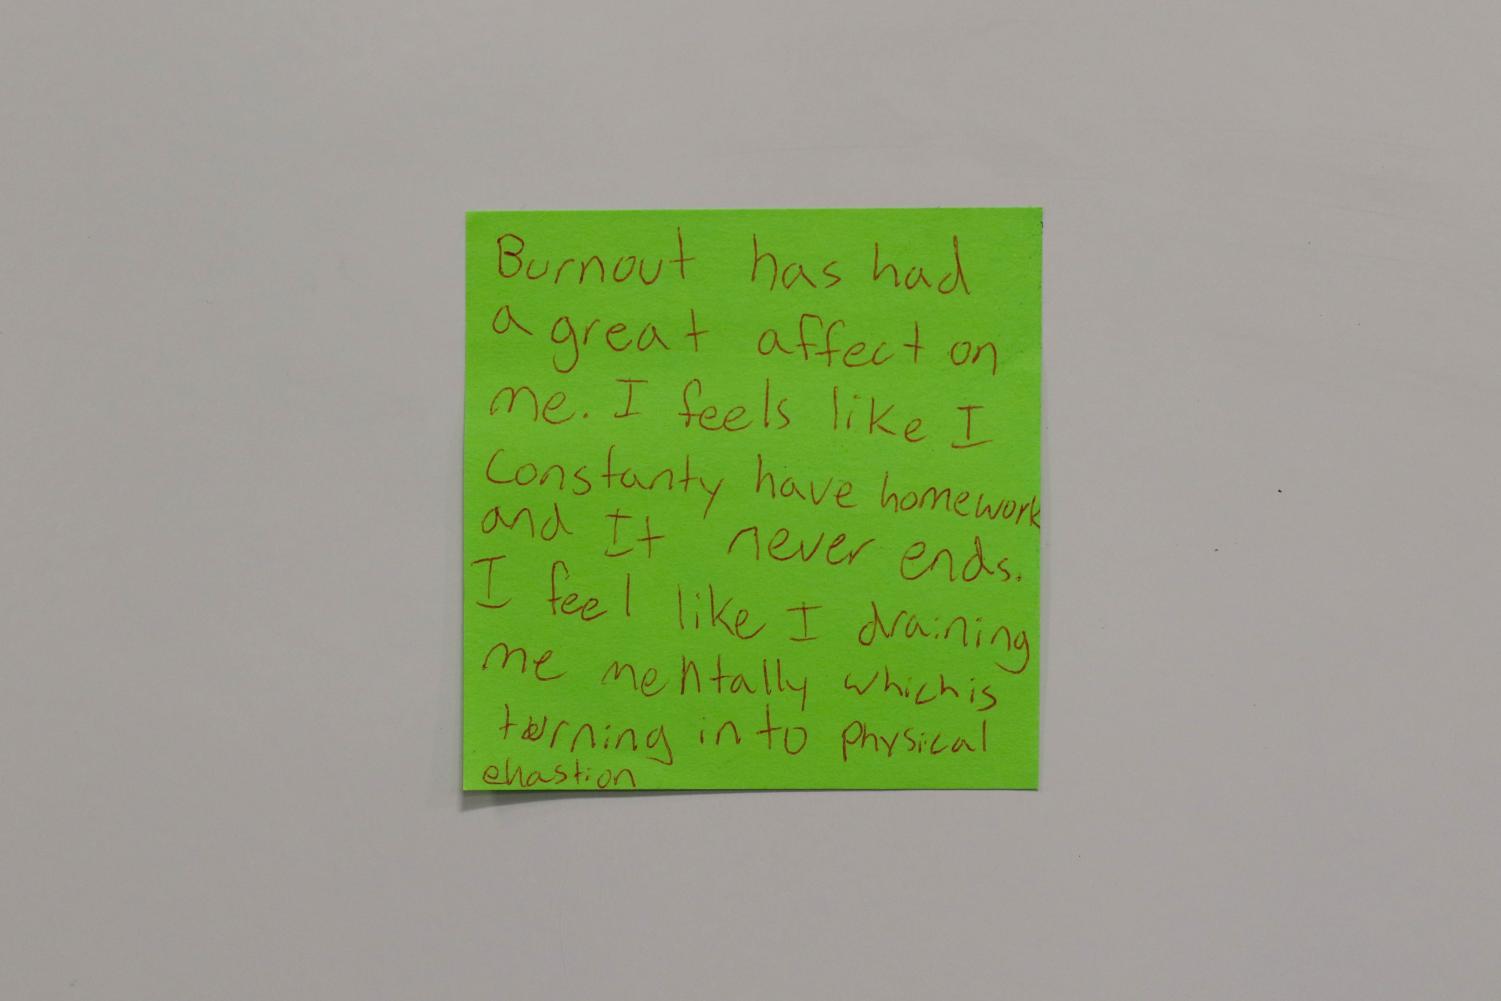 Burnout has had
a great affect on
me. I feels like I
constanty have homework
and It never ends.
I feel like I draining
me mentally which is
turning into physical
ehastion